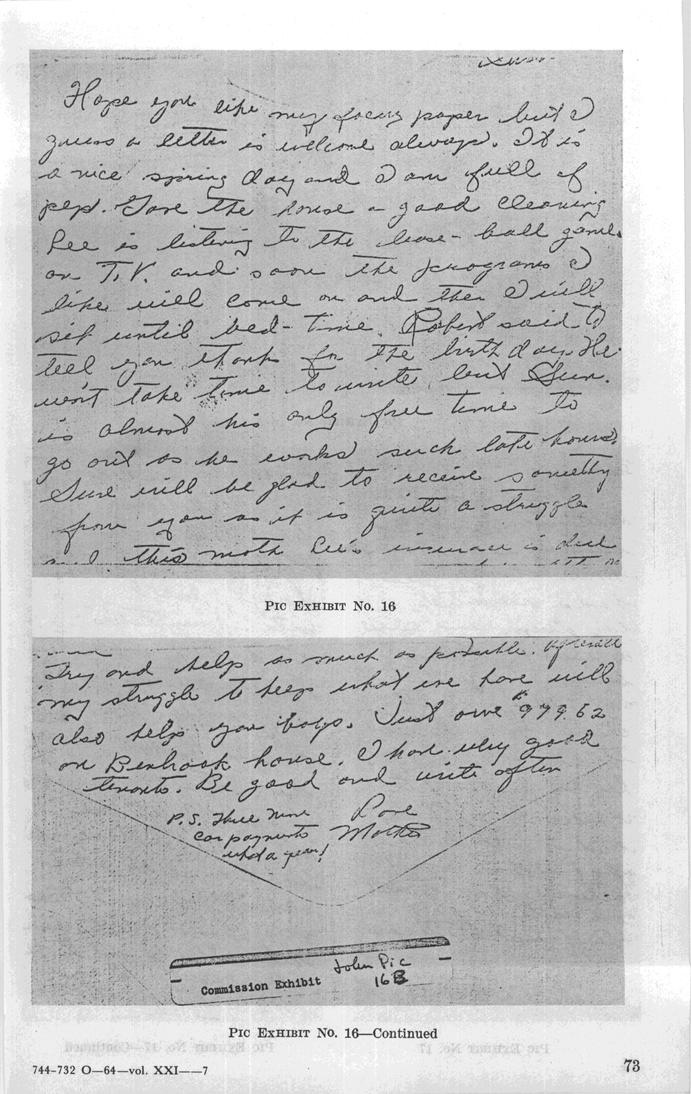 Hope you like my focus paper but I
guess a letter is welcome always. It is
a nice spring day and I am full of
pep. Gave the house a good cleaning
Lee is listening to the base-ball game
on T.V. and soon the programs I
like will come on and then I will
sit until bed-time. Robert said to
tell you thank for the birthday. He
won't take time to write, but Sun.
is almost his only free time to
go out as he works such late hours,
Sure will be glad to receive somethg
from you as it is quite a struggle
this moth Lee's insurance is due
Try and help as much as possible. After all
my struggle to keep what we have will
also help you boys. Just owe $979.52
on Benbrook house. I have very good
tenants. Be good and write often
Love
Mother
P.S. Three more
car payments
what a year!
Commission Exhibit John Pic
16B
PIC EXHIBIT NO. 16
PIC EXHIBIT NO. 16—Continued
744-732 O—64—vol. XXI——7
73